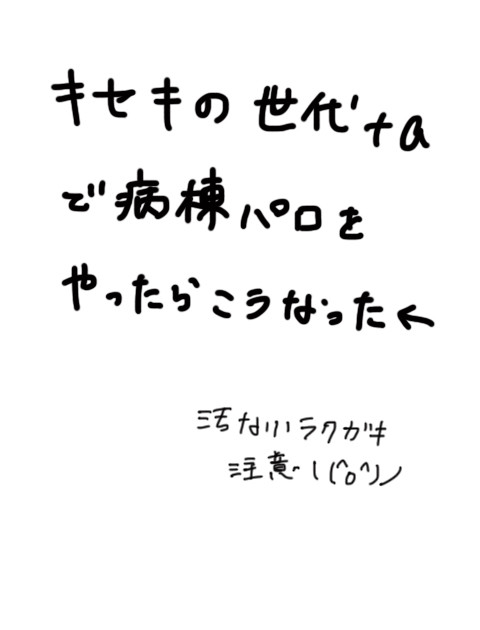 キセキの世代+α
で病棟パロを
やったらこうなった←
汚ないラクガキ
注意!(^o^)ノ